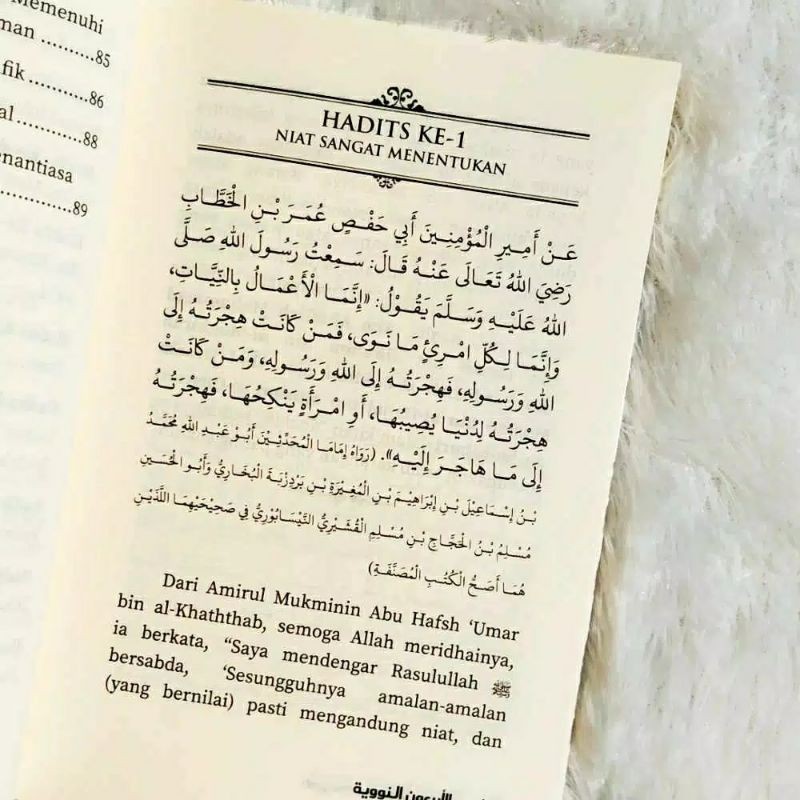 Memenuhi
man ..........85
fik ..........86
al ..........88
nantiasa
..........89
HADITS KE-1
NIAT SANGAT MENENTUKAN
عَنْ أَمِيرِ الْمُؤْمِنِينَ أَبِي حَفْصٍ عُمَرَ بْنِ الْخَطَّابِ
رَضِيَ اللهُ تَعَالَى عَنْهُ قَالَ: سَمِعْتُ رَسُولَ اللهِ صَلَّى
اللهُ عَلَيْهِ وَسَلَّمَ يَقُولُ: «إِنَّمَا الْأَعْمَالُ بِالنِّيَّاتِ،
وَإِنَّمَا لِكُلِّ امْرِئٍ مَا نَوَى، فَمَنْ كَانَتْ هِجْرَتُهُ إِلَى
اللهِ وَرَسُولِهِ، فَهِجْرَتُهُ إِلَى اللهِ وَرَسُولِهِ، وَمَنْ كَانَتْ
هِجْرَتُهُ لِدُنْيَا يُصِيبُهَا، أَوِ امْرَأَةٍ يَنْكِحُهَا، فَهِجْرَتُهُ
إِلَى مَا هَاجَرَ إِلَيْهِ». (رَوَاهُ إِمَامَا الْمُحَدِّثِيْنَ أَبُوْ عَبْدِ اللهِ مُحَمَّدُ
بْنُ إِسْمَاعِيْلَ بْنِ إِبْرَاهِيْمَ بْنِ الْمُغِيْرَةِ بْنِ بَرْدِزْبَهْ الْبُخَارِيُّ وَأَبُو الْحُسَيْنِ
مُسْلِمُ بْنُ الْحَجَّاجِ بْنِ مُسْلِمٍ الْقُشَيْرِيُّ النَّيْسَابُوْرِيُّ فِي صَحِيْحَيْهِمَا اللَّذَيْنِ
هُمَا أَصَحُّ الْكُتُبِ الْمُصَنَّفَةِ)
Dari Amirul Mukminin Abu Hafsh ‘Umar
bin al-Khaththab, semoga Allah meridhainya,
ia berkata, “Saya mendengar Rasulullah ﷺ
bersabda, ‘Sesungguhnya amalan-amalan
(yang bernilai) pasti mengandung niat, dan
الأربعون النووية